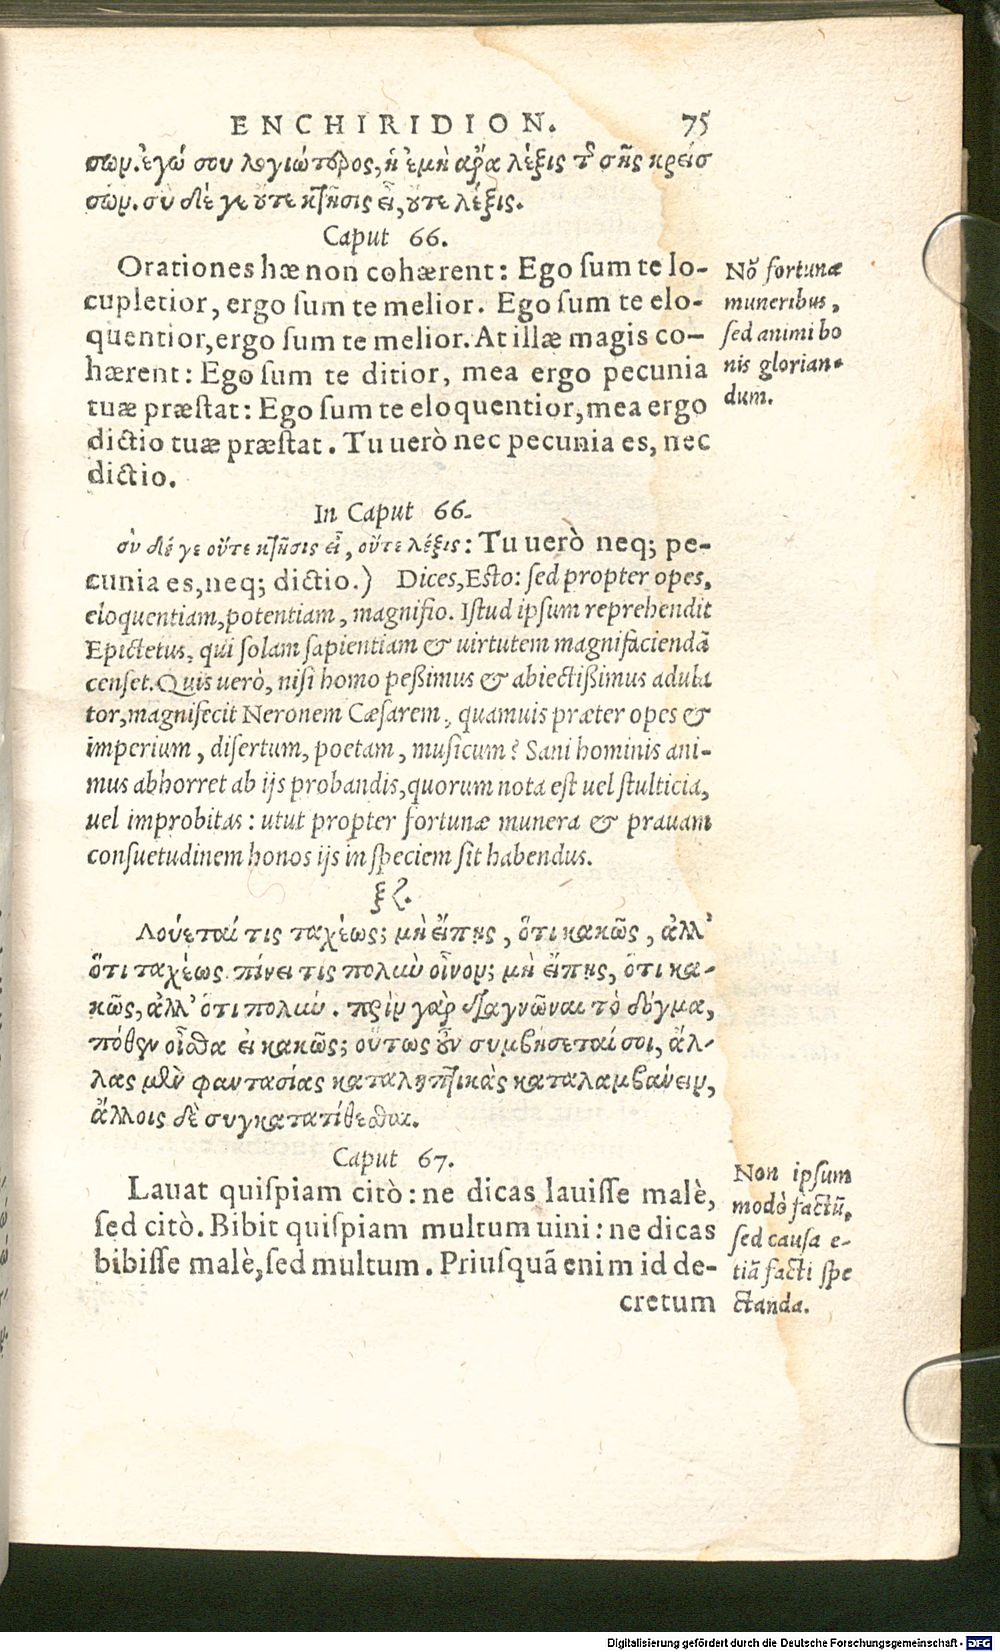 ENCHIRIDION. 75
σων. ἐγώ σου λογιώτερος, ἡ ἐμὴ ἄρα λέξις τῆς σῆς κρείσ
σων. σὺ δέ γε οὔτε κτῆσις εἶ, οὔτε λέξις.
Caput 66.
Orationes hæ non cohærent: Ego ſum te lo-
cupletior, ergo ſum te melior. Ego ſum te elo-
quentior, ergo ſum te melior. At illæ magis co-
hærent: Ego ſum te ditior, mea ergo pecunia
tuæ præſtat: Ego ſum te eloquentior, mea ergo
dictio tuæ præſtat. Tu uerò nec pecunia es, nec
dictio.
Nõ fortunæ
muneribus,
ſed animi bo
nis glorian-
dum.
In Caput 66.
σὺ δέ γε οὔτε κτῆσις εἶ, οὔτε λέξις: Tu uerò neq; pe-
cunia es, neq; dictio.) Dices, Eſto: ſed propter opes,
eloquentiam, potentiam, magnifio. Iſtud ipſum reprehendit
Epictetus, qui ſolam ſapientiam & uirtutem magnifaciendã
cenſet. Quis uerò, niſi homo peßimus & abiectißimus adula
tor, magnifecit Neronem Cæſarem, quamuis præter opes &
imperium, diſertum, poetam, muſicum? Sani hominis ani-
mus abhorret ab ijs probandis, quorum nota eſt uel ſtulticia,
uel improbitas: utut propter fortunæ munera & prauam
conſuetudinem honos ijs in ſpeciem ſit habendus.
ξζ.
Λούεταί τις ταχέως; μὴ εἴπῃς, ὅτι κακῶς, ἀλλ'
ὅτι ταχέως. πίνει τις πολὺν οἶνον; μὴ εἴπῃς, ὅτι κα-
κῶς, ἀλλ' ὅτι πολύν. πρὶν γὰρ διαγνῶναι τὸ δόγμα,
πόθεν οἶσθα εἰ κακῶς; οὕτως οὖν συμβήσεταί σοι, ἄλ-
λας μὲν φαντασίας καταληπτικὰς καταλαμβάνειν,
ἄλλοις δὲ συγκατατίθεσθαι.
Caput 67.
Lauat quiſpiam citò: ne dicas lauiſſe malè,
ſed citò. Bibit quiſpiam multum uini: ne dicas
bibiſſe malè, ſed multum. Priuſquã enim id de-
cretum
Non ipſum
modò factũ,
ſed cauſa e-
tiã facti ſpe
ctanda.
Digitalisierung gefördert durch die Deutsche Forschungsgemeinschaft - DFG